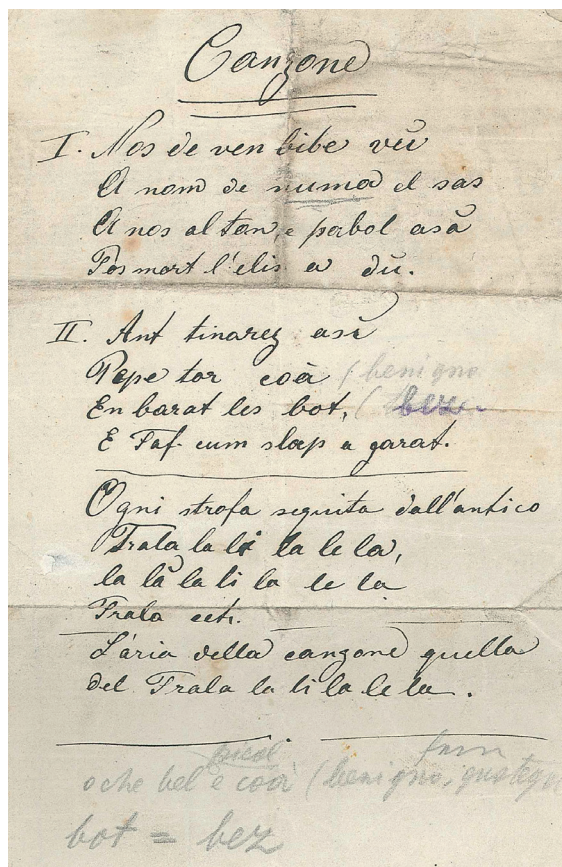 Canzone
I. Nos de ven bibe vũ
A nom de numa el sas
A nos al ton, e perbol asã
Pos mort l'elis a dũ.
II. Ant tinarez asã
Pepe tor coà (benigno
En barat les bot, (bez.
E Faf cum slap a garat.
Ogni strofa seguita dall'antico
Trala la li la le la,
la la la li la le la
Trala ect.
L'aria della canzone quella
del Trala la li la le la.
picol
o che bel e coà (benigno,
bot = bez